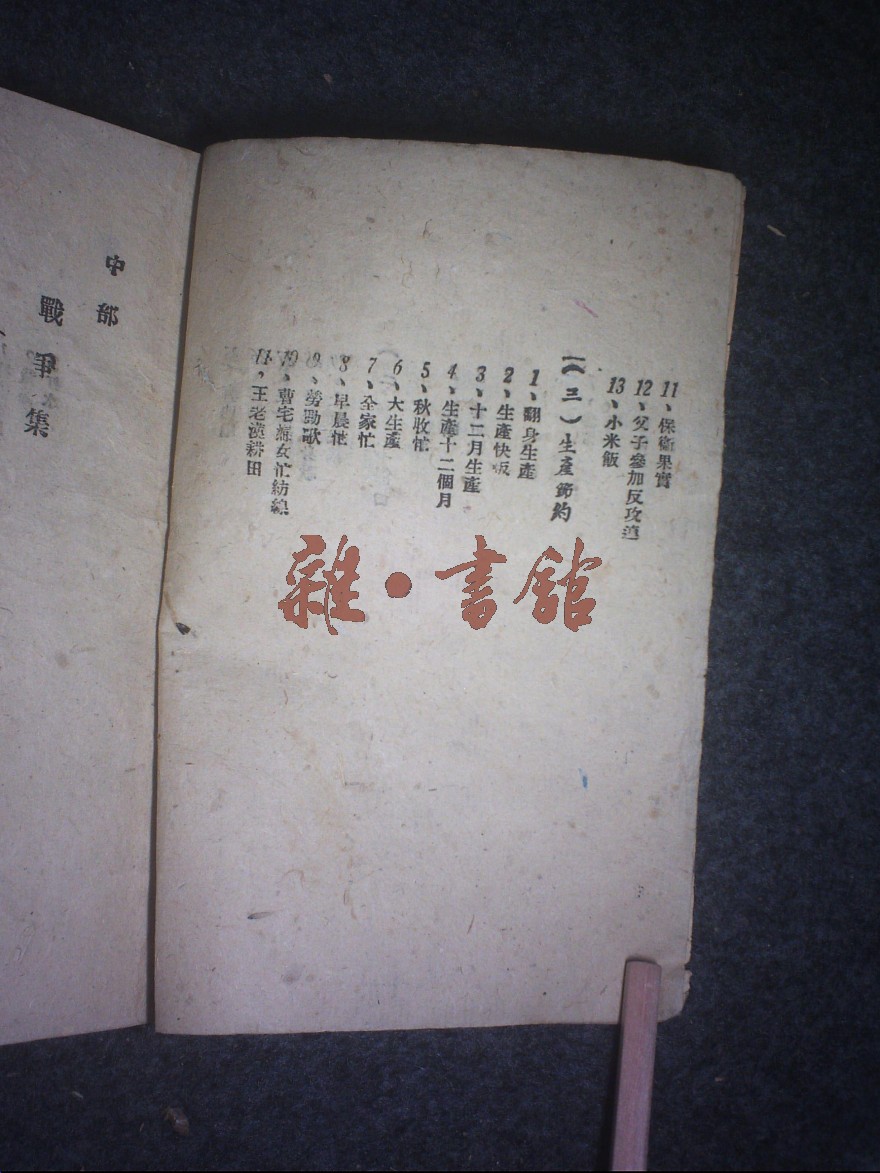 11、保衛果實
12、父子參加反攻道
13、小米飯
(三)生產節約
1、翻身生產
2、生產快板
3、十二月生產
4、生產十二個月
5、秋收忙
6、大生產
7、全家忙
8、早晨忙
9、勞動歌
10、曹宅婦女忙紡線
11、王老漢耕田
中部
戰爭集
雜·書館